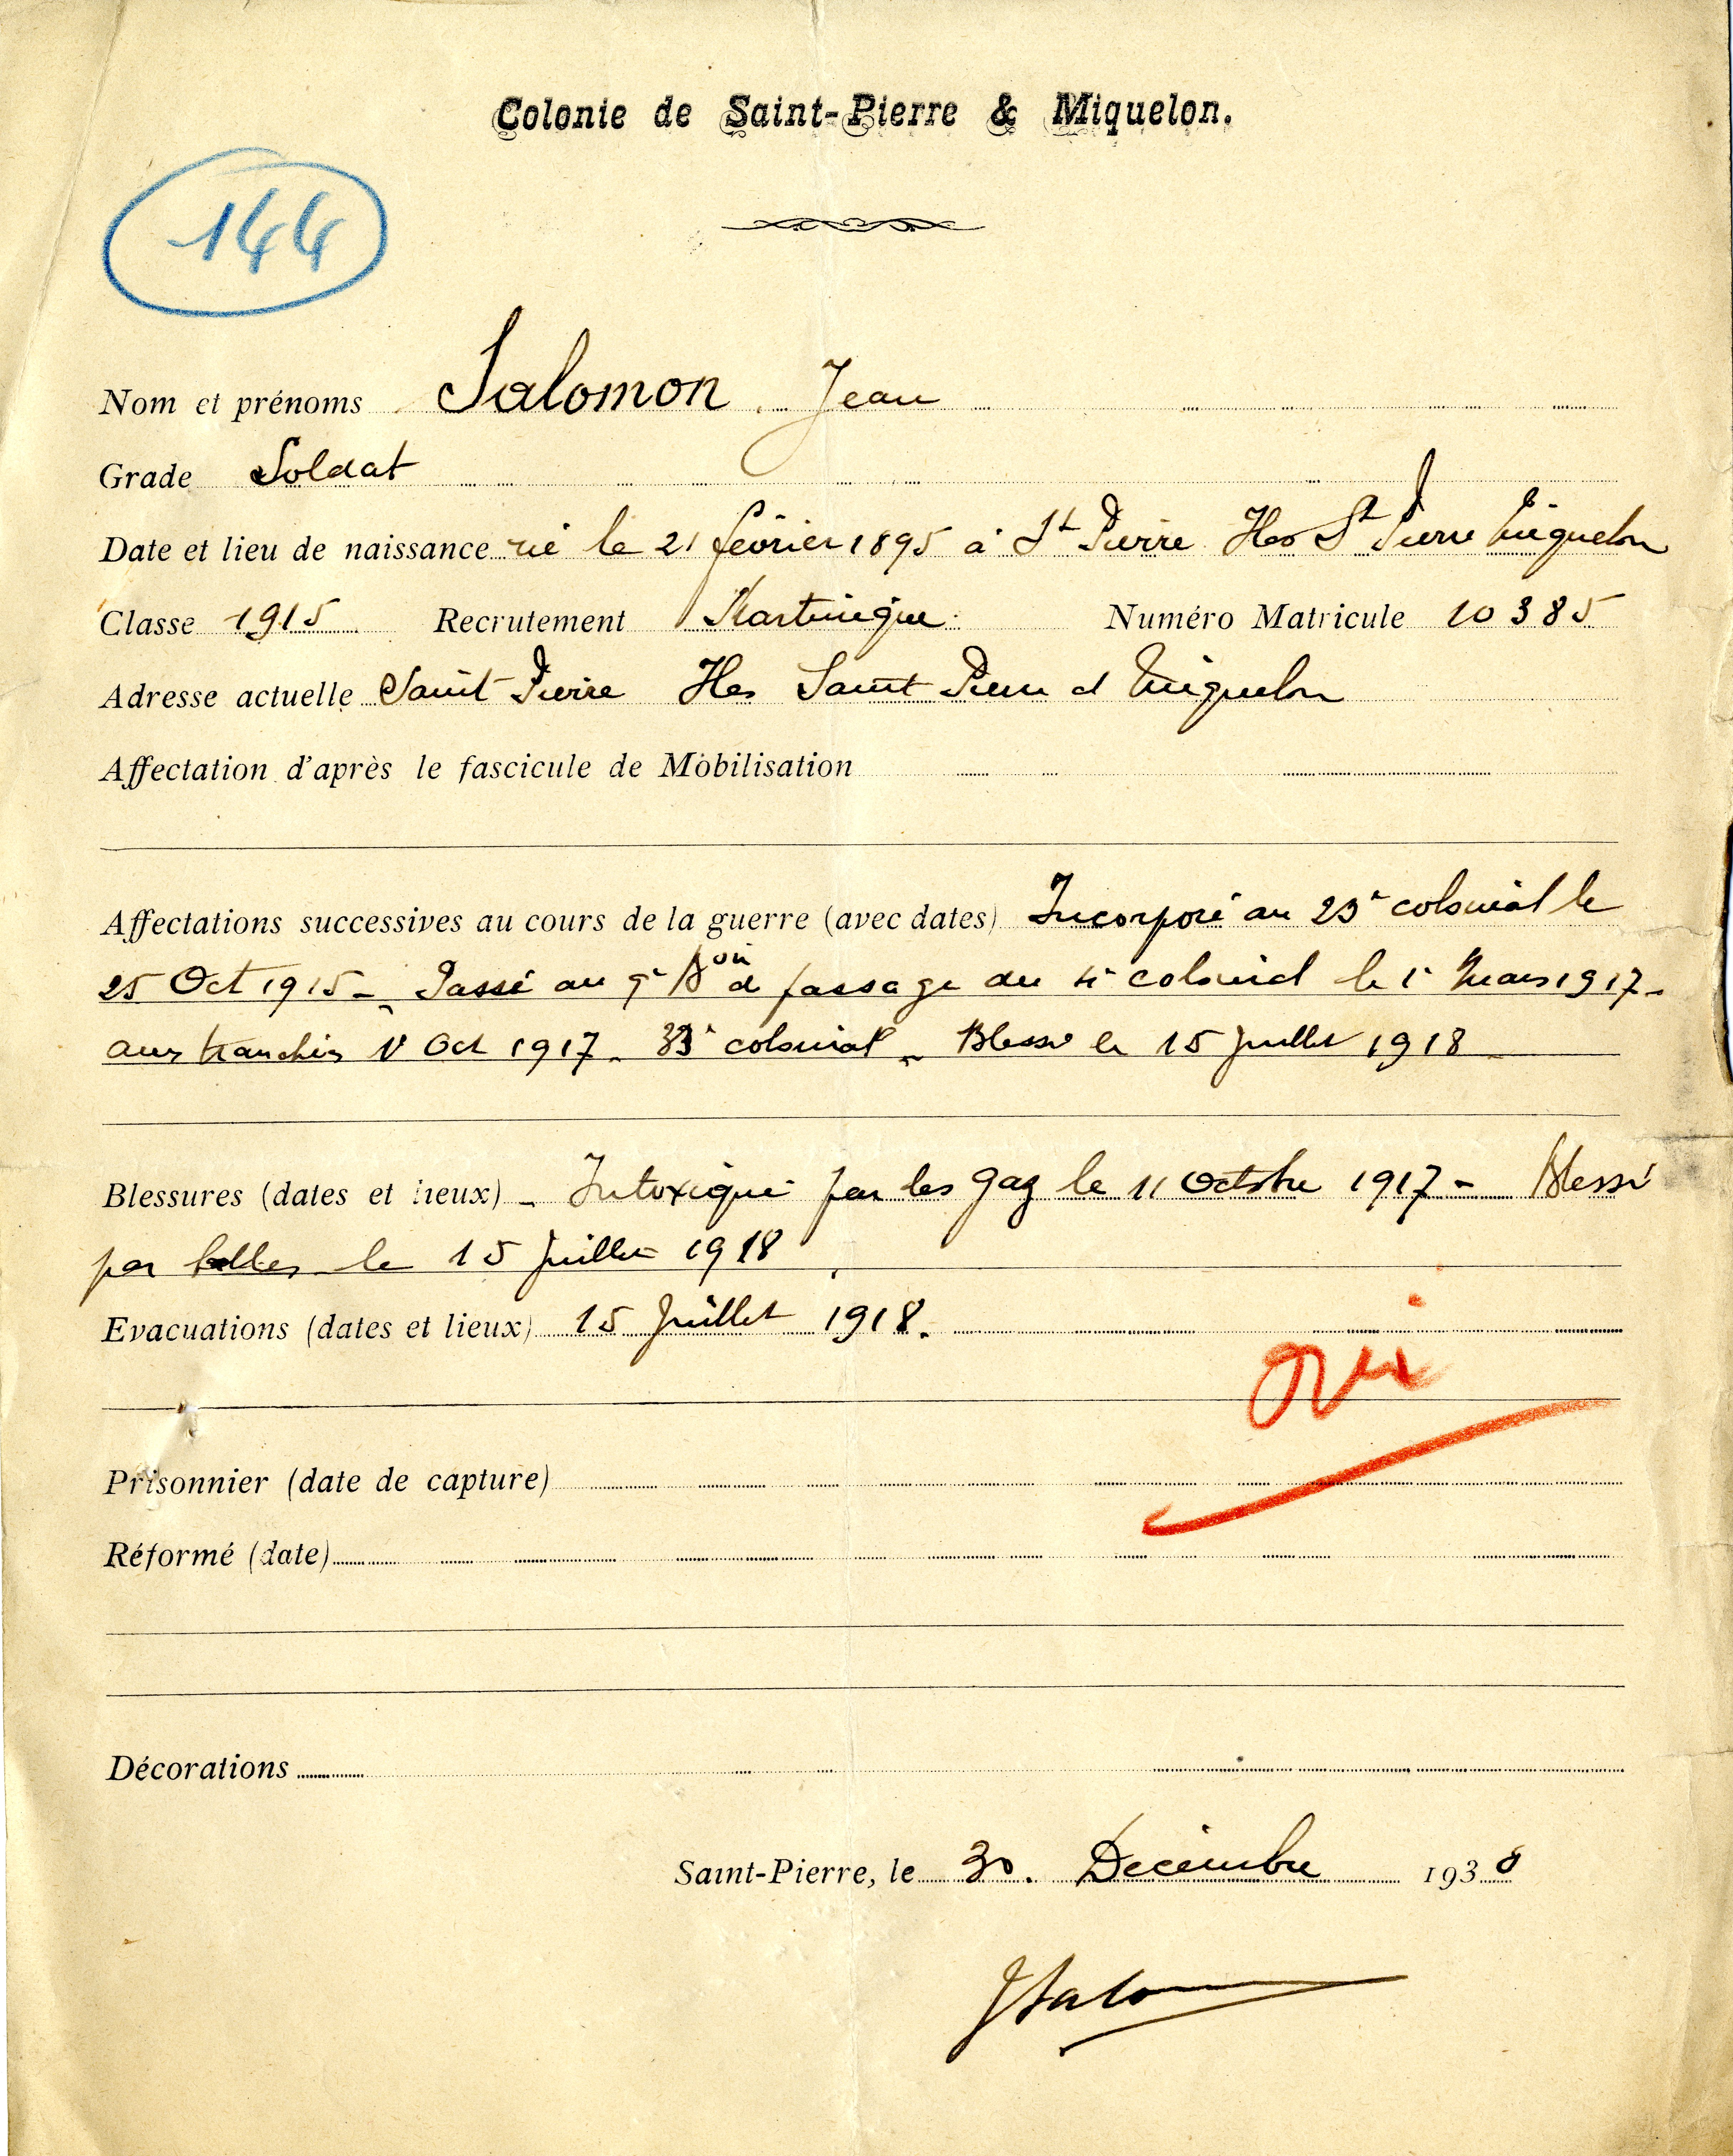 Colonie de Saint-Pierre & Miquelon.
144
Nom et prénoms Salomon Jean
Grade Soldat
Date et lieu de naissance né le 21 février 1895 à St Pierre Iles St Pierre Miquelon
Classe 1915 Recrutement Martinique Numéro Matricule 10385
Adresse actuelle Saint Pierre Iles Saint Pierre et Miquelon
Affectation d'après le fascicule de Mobilisation
Affectations successives au cours de la guerre (avec dates) Incorporé au 23e colonial le
25 Oct 1915 - Passé au 9e Bon de passage du 4e colonial le 1er Mars 1917 -
aux tranchées 1er Oct 1917 - 33e colonial - Blessé le 15 Juillet 1918
Blessures (dates et lieux) - Intoxiqué par les gaz le 11 Octobre 1917 - Blessé
par balles le 15 Juillet 1918
Evacuations (dates et lieux) 15 Juillet 1918.
oui
Prisonnier (date de capture)
Réformé (date)
Décorations
Saint-Pierre, le 30. Decembre 1930
JSalo